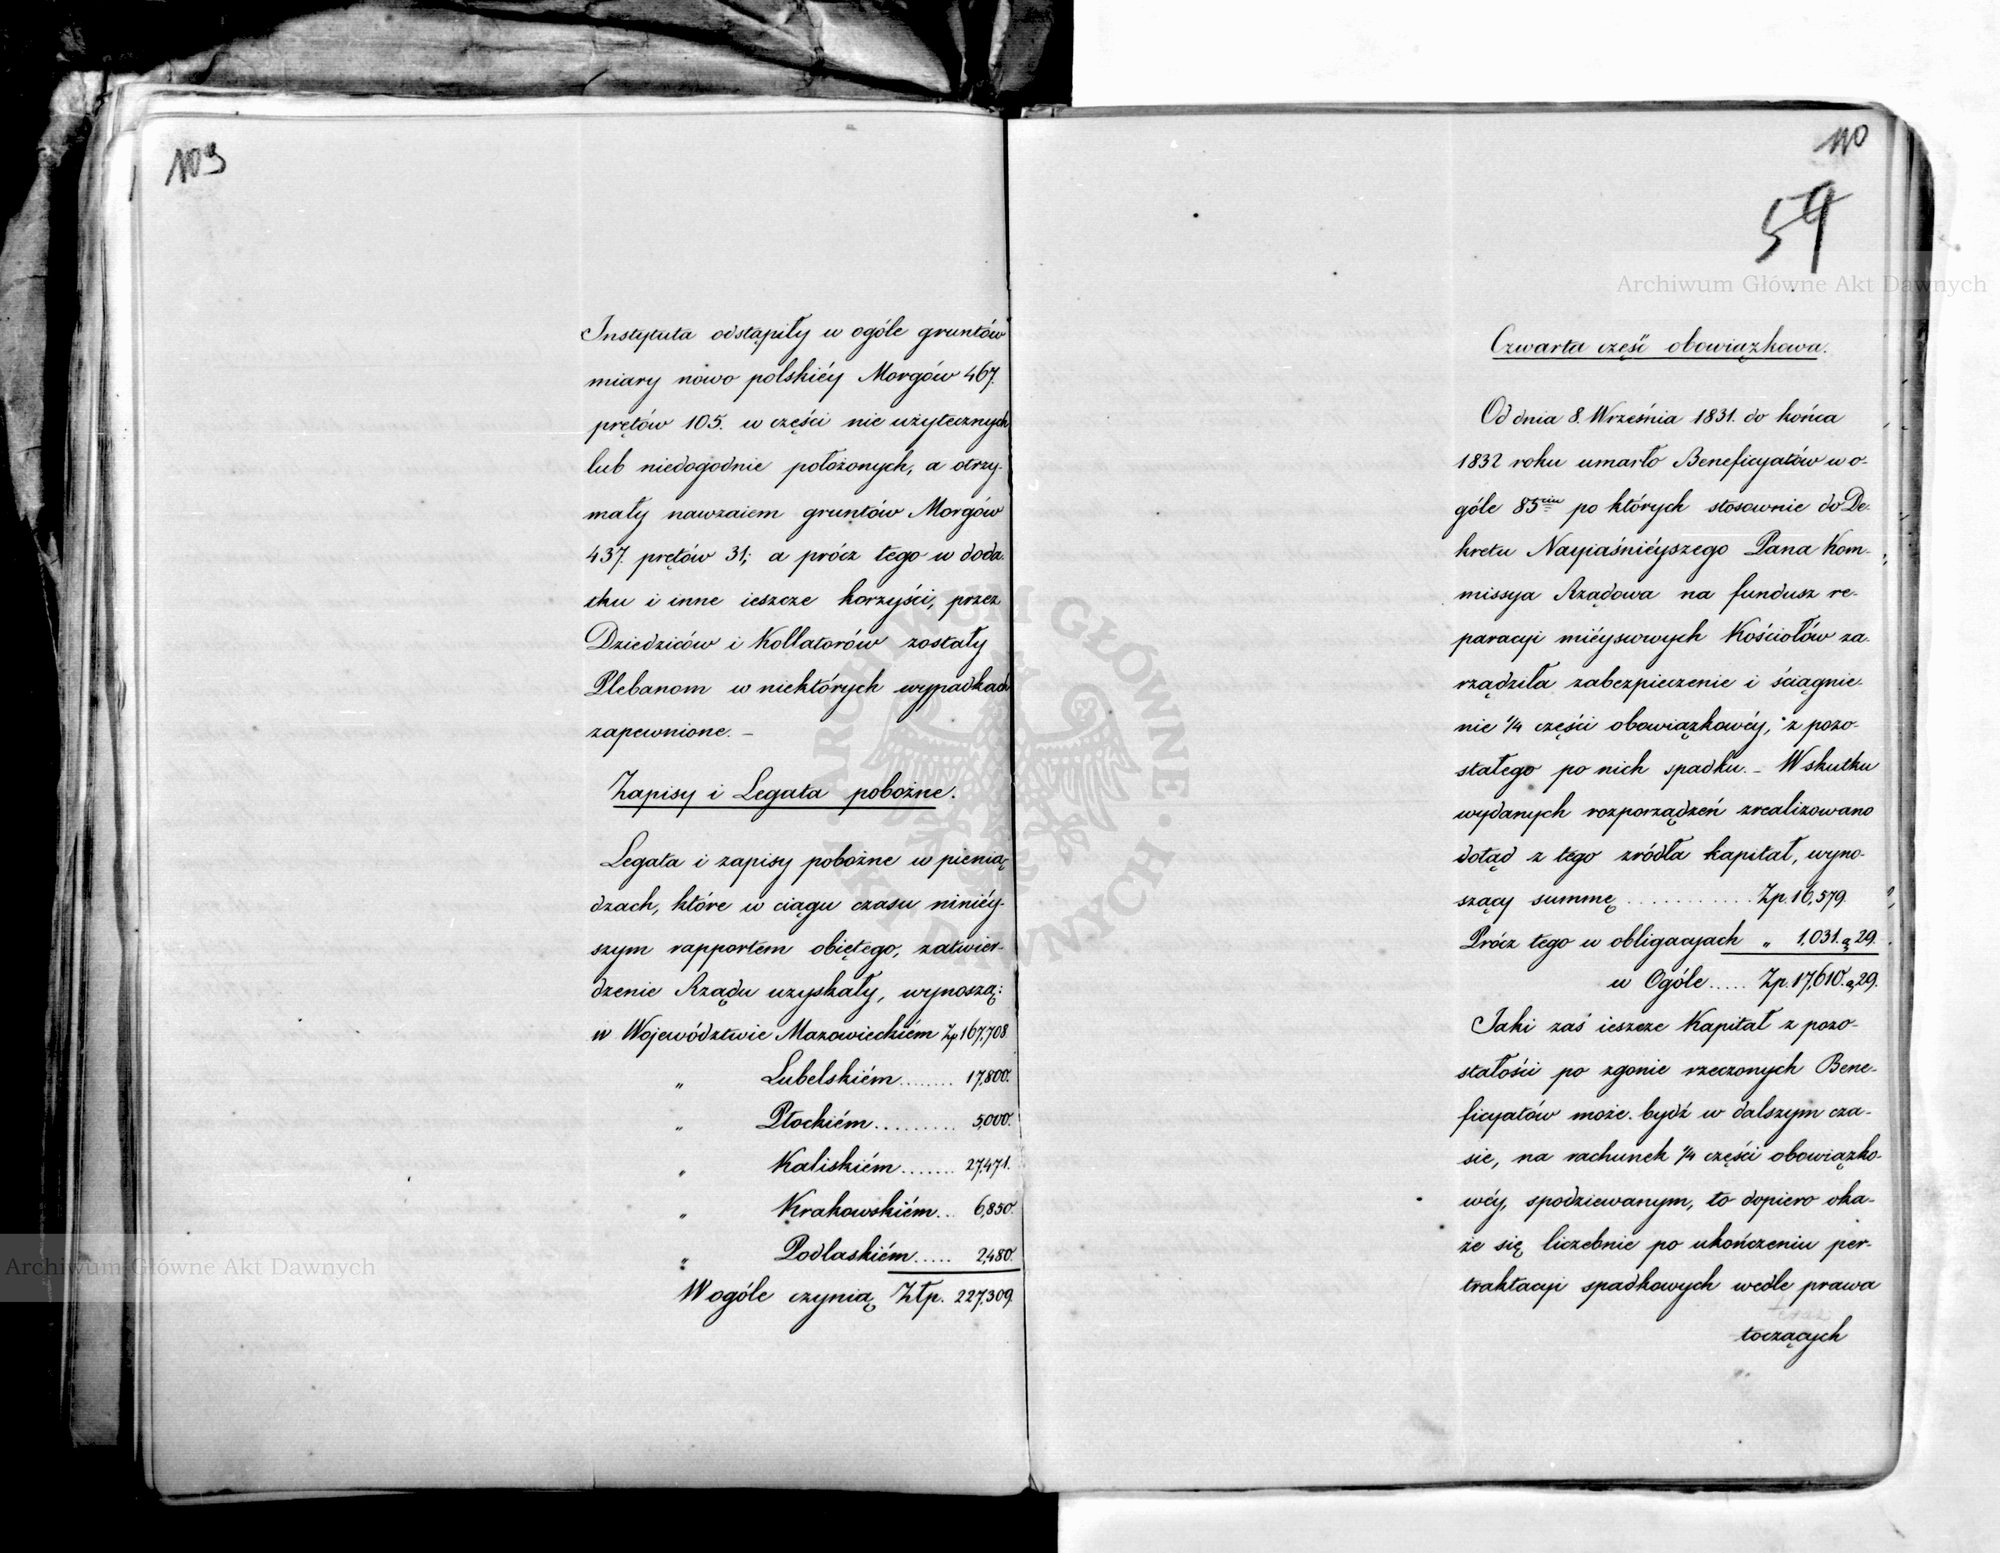 109
Instytuta odstąpiły w ogóle gruntów
miary nowo polskiéy Morgów 467.
prętów 105. w części nie użytecznych
lub niedogodnie położonych, a otrzy-
mały nawzaiem gruntów Morgów
437. prętów 31; a prócz tego w doda-
tku i inne ieszcze korzyści, przez
Dziedziców i Kollatorów zostały
Plebanom w niektórych wypadkach
zapewnione. –
Zapisy i Legata pobożne.
Legata i zapisy pobożne w pienią-
dzach, które w ciągu czasu niniéy-
szym rapportem obiętego, zatwier-
dzenie Rządu uzyskały, wynoszą:
w Województwie Mazowieckiém Zp 167,708
„ Lubelskiém........ 17,800.
„ Płockiém......... 5,000.
„ Kaliskiém....... 27,471.
„ Krakowskiém... 6,850.
„ Podlaskiém..... 2,480.
Wogóle czynią Złp. 227,309
110
59
Czwarta część obowiązkowa.
Od dnia 8. Września 1831. do końca
1832 roku umarło Beneficyatów w o-
góle 85ciu po których stosownie do De-
kretu Nayiaśniéyszego Pana Kom-
missya Rządowa na fundusz re-
paracyi miéyscwych Kościołów za-
rządziła zabezpieczenie i ściągnie-
nie 1/4 części obowiązkowéy, z pozo-
stałego po nich spadku. – Wskutku
wydanych rozporządzeń zrealizowano
dotąd z tego zródła kapitał, wyno-
szący summę ........... Zp. 16,579.
Prócz tego w obligacyach „ 1,031. g 29.
w Ogóle..... Zp. 17,610. g 29.
Jaki zaś ieszcze Kapitał z pozo-
stałości po zgonie rzeczonych Bene-
ficyatów może bydź w dalszym cza-
sie, na rachunek 1/4 części obowiązko-
wéy, spodziewanym, to dopiero oka-
że się liczebnie po ukończeniu per-
traktacyi spadkowych wedle prawa
toczących
Archiwum Główne Akt Dawnych
Archiwum Główne Akt Dawnych
ARCHIWUM GŁÓWNE AKT DAWNYCH